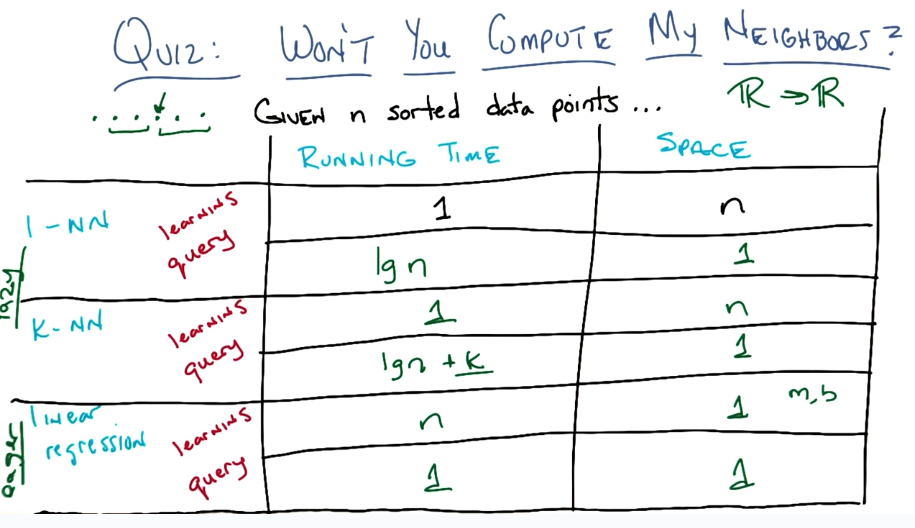 QUIZ: WON'T YOU COMPUTE MY NEIGHBORS?
GIVEN n sorted data points ... ℝ → ℝ
RUNNING TIME SPACE
1-NN learning 1 n
query lg n 1
lazy
K-NN learning 1 n
query lg n + k 1
linear regression learning n 1 m, b
eager
query 1 1